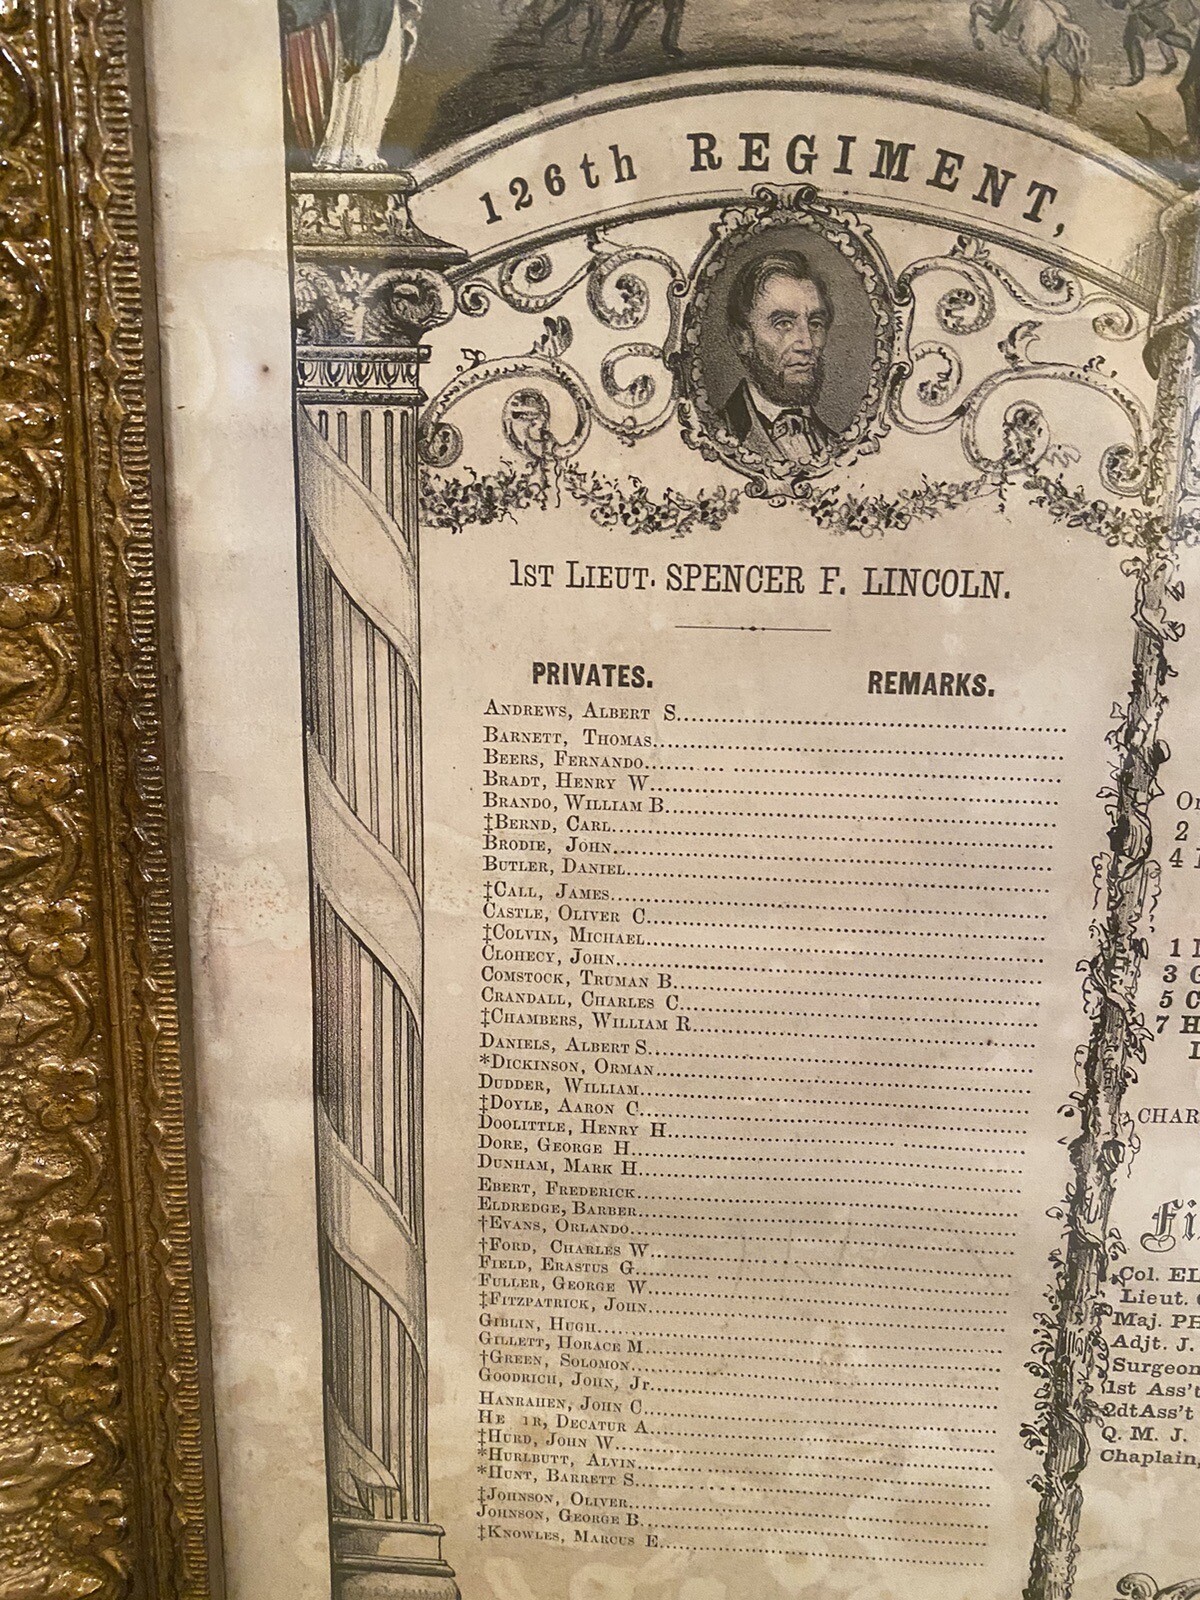 126th REGIMENT,
1ST LIEUT. SPENCER F. LINCOLN.
PRIVATES. REMARKS.
ANDREWS, ALBERT S.
BARNETT, THOMAS
BEERS, FERNANDO
BRADT, HENRY W.
BRANDO, WILLIAM B.
‡BERND, CARL
BRODIE, JOHN
BUTLER, DANIEL
‡CALL, JAMES
CASTLE, OLIVER C.
‡COLVIN, MICHAEL
CLOHECY, JOHN
COMSTOCK, TRUMAN B.
CRANDALL, CHARLES C.
‡CHAMBERS, WILLIAM R.
DANIELS, ALBERT S.
*DICKINSON, ORMAN
DUDDER, WILLIAM
‡DOYLE, AARON C.
DOOLITTLE, HENRY H.
DORE, GEORGE H.
DUNHAM, MARK H.
EBERT, FREDERICK
ELDREDGE, BARBER
†EVANS, ORLANDO
†FORD, CHARLES W.
FIELD, ERASTUS G.
FULLER, GEORGE W.
‡FITZPATRICK, JOHN
GIBLIN, HUGH
GILLETT, HORACE M.
†GREEN, SOLOMON
GOODRICH, JOHN, Jr.
HANRAHEN, JOHN C.
DECATUR A.
‡HURD, JOHN W.
*HURLBUTT, ALVIN
*HUNT, BARRETT S.
‡JOHNSON, OLIVER
JOHNSON, GEORGE B.
‡KNOWLES, MARCUS E.
2
4
1
3 G
5 C
7 H
CHAR
Fi
Col. EL
Lieut.
Maj. PH
Adjt. J.
Surgeon
1st Ass't
2dt Ass't
Q. M. J.
Chaplain,